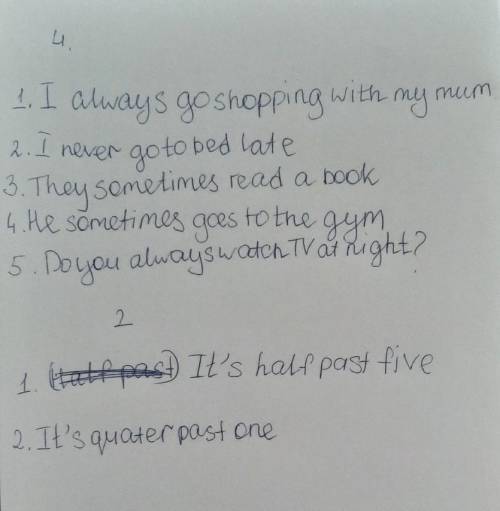 4.
1. I always go shopping with my mum
2. I never go to bed late
3. They sometimes read a book
4. He sometimes goes to the gym
5. Do you always watch TV at night?
2
1. (Half past) It's half past five
2. It's quater past one